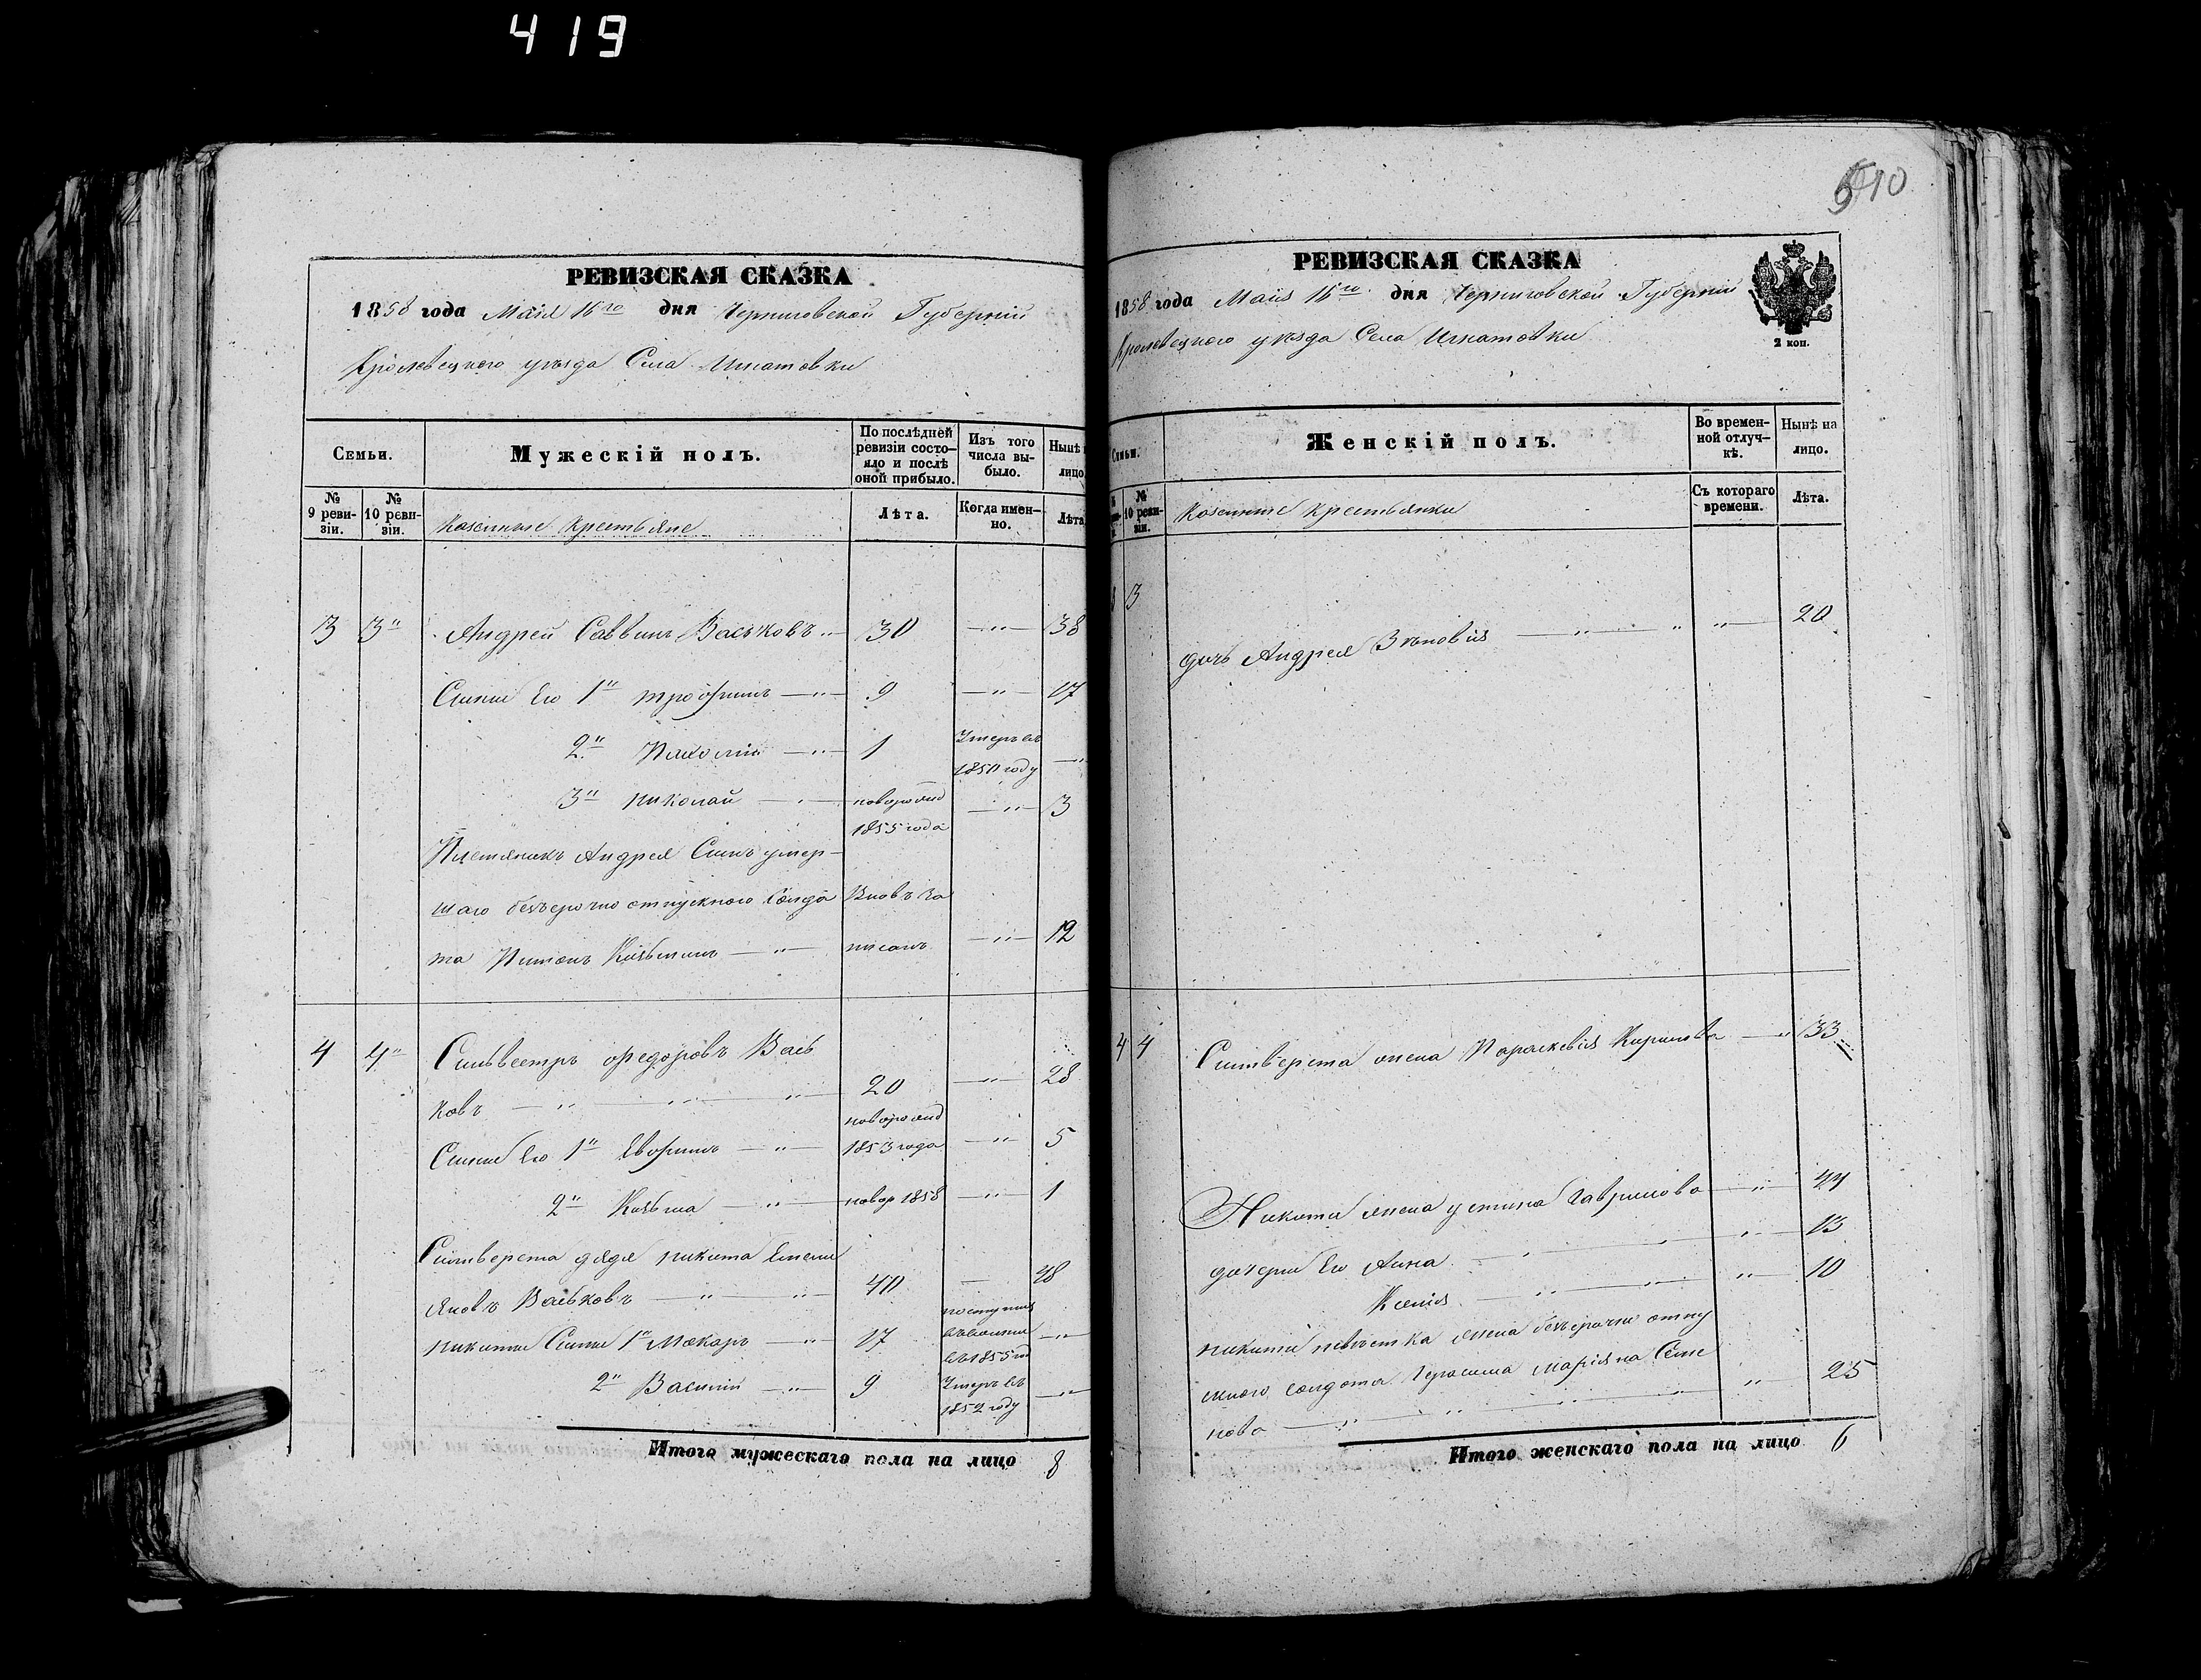 419
РЕВИЗСКАЯ СКАЗКА
1858 года Маія 16го дня Черниговской Губерніи
Кролевецкого уѣзда Села Игнатовки
Семьи.
Мужескій полъ.
По послѣдней ревизіи состояло и послѣ оной прибыло.
Изъ того числа выбыло.
Нынѣ
лицо
№ 9 ревизіи.
№ 10 ревизіи.
Казенные Крестьяне
Лѣта.
Когда именно.
Лѣта
3 3" Андрей Саввинъ Васьковъ 30 —"— 38
Сыны Его 1" трофимъ —"— 9 —"— 17
2" —"— 1 Умеръ въ 1850 году —"
3" николай —"— новорожд 1855 года —"— 3
Племяникъ Андрея Сынъ умер-
шаго безсрочно отпускного Солда Вновь за
та Козьминъ —"— писанъ —"— 12
4 4" Сильвестръ федоровъ Вась
ковъ —"— 20 —"— 28
Сыны Его 1" Евфимъ —"— новорожд 1853 года —"— 5
2" Козьма —"— новор 1858 —"— 1
Сильверста дядя никита Емели
яновъ Васьковъ —"— 40 — 48
никиты Сыны 1" Макаръ —"— 17 поступил въ 1855 го —"—
2" Василій —"— 9 Умеръ въ 1852 году —"—
Итого мужескаго пола на лицо 8
510
РЕВИЗСКАЯ СКАЗКА
1858 года Маія 16го дня Черниговской Губерніи
Кролевецкого уѣзда Села Игнатовки
2 коп.
Семьи.
Женскій полъ.
Во временной отлучкѣ.
Нынѣ на лицо.
10 ревизіи.
Казенные Крестьянки
Съ котораго времени.
Лѣта.
3 3
дочь Андрея Зѣновія —"— " "— 20
4 4 Сильверста жена Параскевія Кирилова —" 33
Никиты жена устина Гаврилова —"— 44
дочери Его Анна —"— 13
Ксенія —"— "— 10
никиты невѣстка жена безсрочно отпу
скного солдата Герасима маріяна Семе
нова —"— "— 25
Итого женскаго пола на лицо 6